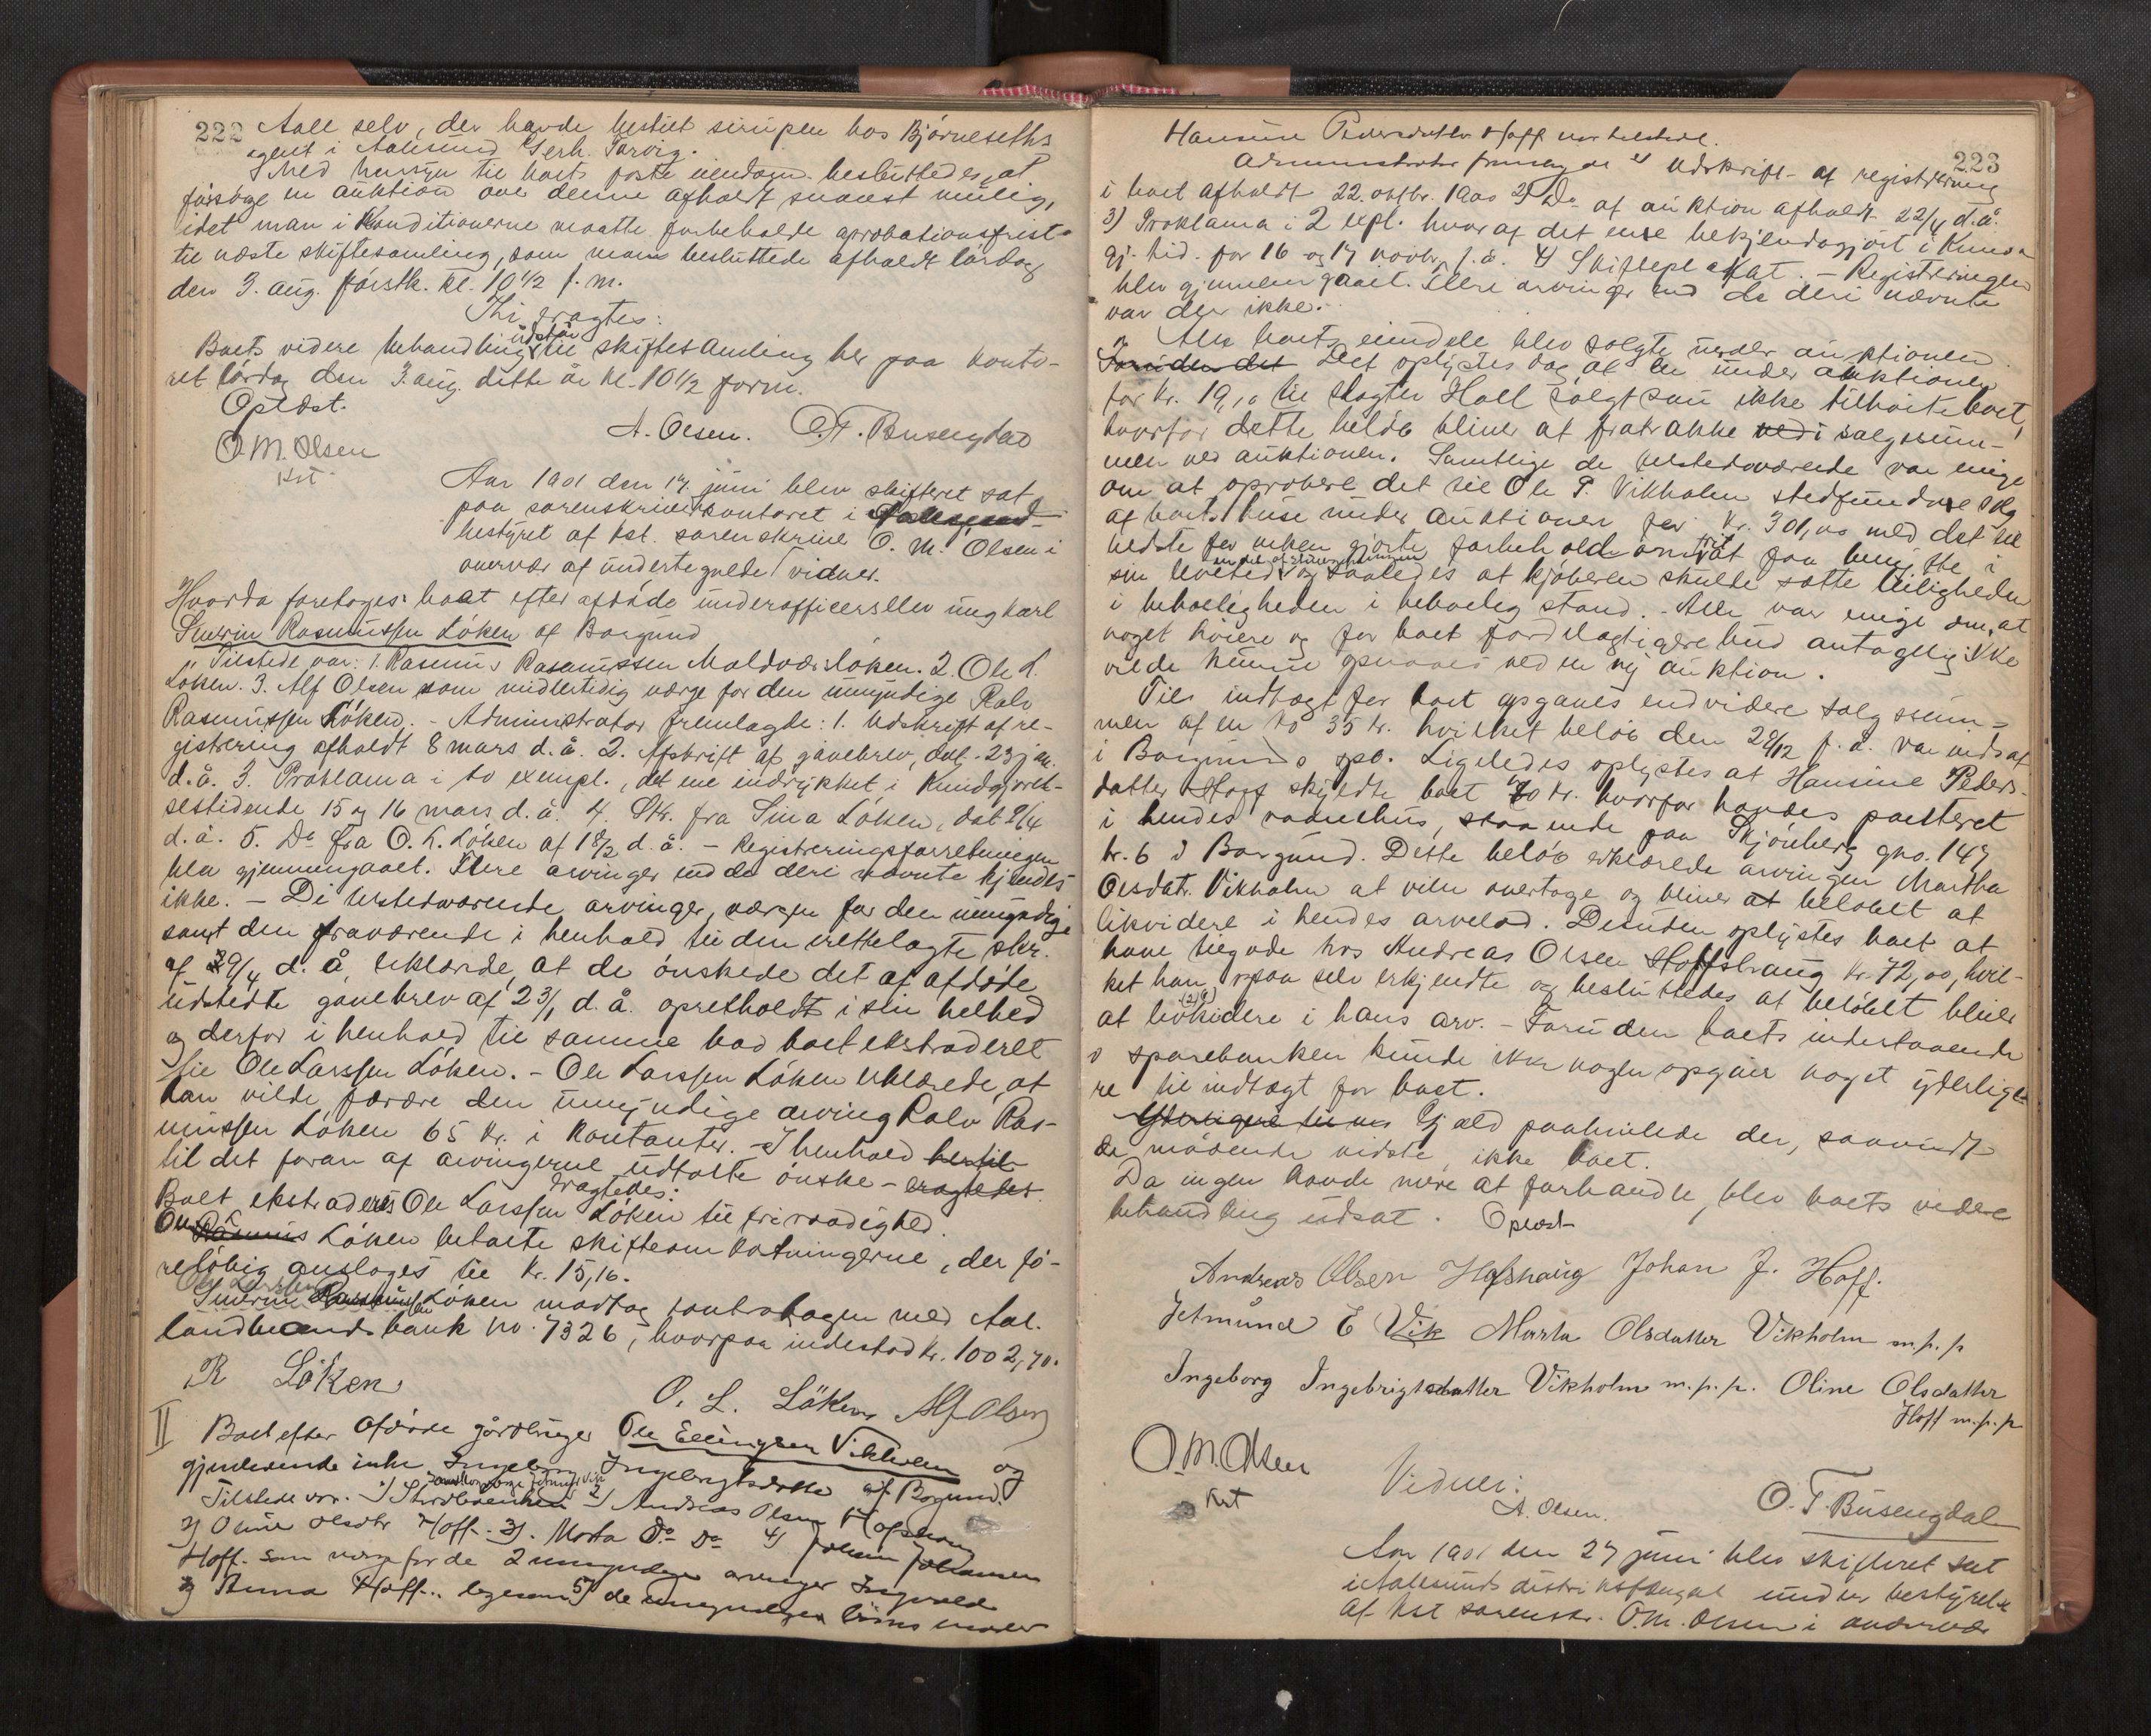 222 Aall selv, der havde bestilt sirupen hos Bjørneseths
agent i Aalesund Gerh. Sarvig.
Med hensyn til boets faste eiendom besluttedes, at
forsøge en auktion over denne afholdt snarest mulig,
idet man i Konditionerne maatte forbeholde aprobationsfrist
til næste skiftesamling, som man besluttede afholdt lördag
den 3. aug. förstk. kl. 10 1/2 f. m.
Thi eragtes:
Boets videre behandling udstår til skiftesamling her paa konto-
ret lördag den 3. aug. dette år kl. 10 1/2 form.
Oplæst.
O. M. Olsen
kst.
A. Olsen. O. T. Busengdal
Aar 1901 den 17. juni blev skifteret sat
paa sorenskriverkontoret i Aalesund
bestyret af kst. sorenskriver O. M. Olsen i
overvær af undertegnede vidner.
Hvorda foretoges: boet efter afdöde underofficerselev ungkarl
Severin Rasmussen Löken af Borgund
Tilstede var: 1. Rasmus Rasmussen Moldværsløken. 2. Ole L.
Löken. 3. Alf Olsen som midlertidig værge for den umyndige Ralv
Rasmussen Löken. - Administrator fremlagde: 1. Udskrift af re-
gistrering afholdt 8 mars d. å. 2. Afskrift af gavebrev, dat. 23 jan.
d. å. 3. Proklama i to exempl., det ene indrykket i Kundgjörel-
sestidende 15 og 16 mars d. å. 4. Skr. fra Sina Löken, dat 29/4
d. å. 5. Do fra O. L. Löken af 18/2 d. å. - Registreringsforretningen
blev gjennemgaaet. Flere arvinger end de deri nævnte kjendes
ikke. - De tilstedeværende arvinger, værgen for den umyndige
samt den fraværende i henhold til den irettelagte skr.
af 29/4 d. å. erklærede, at de önskede det af afdöde
udstedte gavebrev af 23/1 d. å. opretholdt i sin helhed
og derfor i henhold til samme bad boet ekstraderet
til Ole Larssen Löken. - Ole Larssen Löken erklærede, at
han vilde forære den umyndige arving Ralv Ras-
mussen Löken 65 kr. i kontanter. - I henhold hertil
til det foran af arvingerne udtalte önske - eragtedes
eragtedes:
Boet ekstraderes Ole Larssen Löken til fri raadighed.
Ole Rasmus Löken betalte skifteomkostningerne, der fo-
relöbig ansloges til kr. 15,16.
Ole Larssen
Severin Rasmussen Löken modtog kontrabogen med Aal.
landmandsbank no. 7326, hvorpaa indestod kr. 1002,70.
R Löken
O. L. Löken Alf Olsen
II Boet efter afdöde gårdbruger Ole Ellingsen Vikholm og
gjenlevende enke Ingeborg Ingebrigtsdatter af Borgund.
Tilstede var. 1) Stervboenken 2) Andreas Olsen Hofshaug
3) Oline Olsdtr Hoff. 3). Marta Do Do 4) Johan Johansen
Hoff. som værge for de 2 umyndige arvinger Ingvald
og Anna Hoff.. ligesom 5) de umyndiges moder
223
Hansine Pedersdatter Hoff var tilstede.
Administrator fremlagde 1) Udskrift af registrering
i boet afholdt 22. oktbr. 1900 2) Do af auktion afholdt 22/4 d. å.
3) Proklama i 2 expl. hvoraf det ene bekjendtgjört i Kund-
gj. tid. for 16 og 17 novbr. f. å. 4) Skifteplakat. - Registreringen
blev gjennemgaaet. Flere arvinger end de deri nævnte
var der ikke.
Alle boets eiendele blev solgte under auktionen
Foruden det Det oplystes dog, at en under auktionen
for kr. 19,10 til slagter Hall solgt sau ikke tilhörte boet,
hvorfor dette belöb bliver at fratrække ved i salgssum-
men ved auktionen. Samtlige de tilstedeværende var enige
om at aprobere det til Ole P. Vikholm stedfundne salg
af boets huse under auktionen for kr. 301,00 med det til
bedste for enken gjorte forbehold om frit at faa benytte i
sin levetid en del af vaaningshuset og saaledes at kjöberen skulde sætte leiligheden
i beboeligheden i beboelig stand. - Alle var enige om, at
noget höiere og for boet fordelagtigere bud antagelig ikke
vilde kunne opnaaes ved en ny auktion.
Til indtægt for boet opgaves endvidere salgssum-
men af en ko 35 kr. hvilket belöb den 28/12 f. å. var indsat
i Borgunds spb. Ligeledes oplystes at Hansine Peders-
datter Hoff skyldte boet 70 kr. hvorfor havdes panteret
i hendes vaanehus, staaende paa Skjönberg gno. 147
br. 6 i Borgund. Dette belöb erklærede arvingen Martha
Olsdatr. Vikholm at ville overtage og bliver at belöbet at
likvidere i hendes arvelod. Desuden oplystes boet at
have tilgode hos Andreas Olsen Hoffshaug kr. 72,00, hvil-
ket han ogsaa selv erkjendte og besluttedes at belöbet bliver
at likvidere i hans arv. - Foruden boets indestaaende
i sparebanken kunde ikke nogen opgives noget yderlige-
re til indtægt for boet.
Yderligere til en Gjæld paahvilede der, saavidt
de mödende vidste, ikke boet.
Da ingen havde mere at forhandle, blev boets videre
behandling udsat. Oplæst
Andreas Olsen Hofshaug Johan J. Hoff.
Jetmund E Vik Marta Olsdatter Vikholm m.p.p
Ingeborg Ingebrigtsdatter Vikholm m.p.p. Oline Olsdatter
Hoff m.p.p
O. M. Olsen
kst
Vidner:
A. Olsen. O. T. Busengdal
Aar 1901 den 27 juni blev skifteret sat
i Aalesunds distriktsfængsel under bestyrelse
af kst sorenskr. O. M. Olsen i overvær